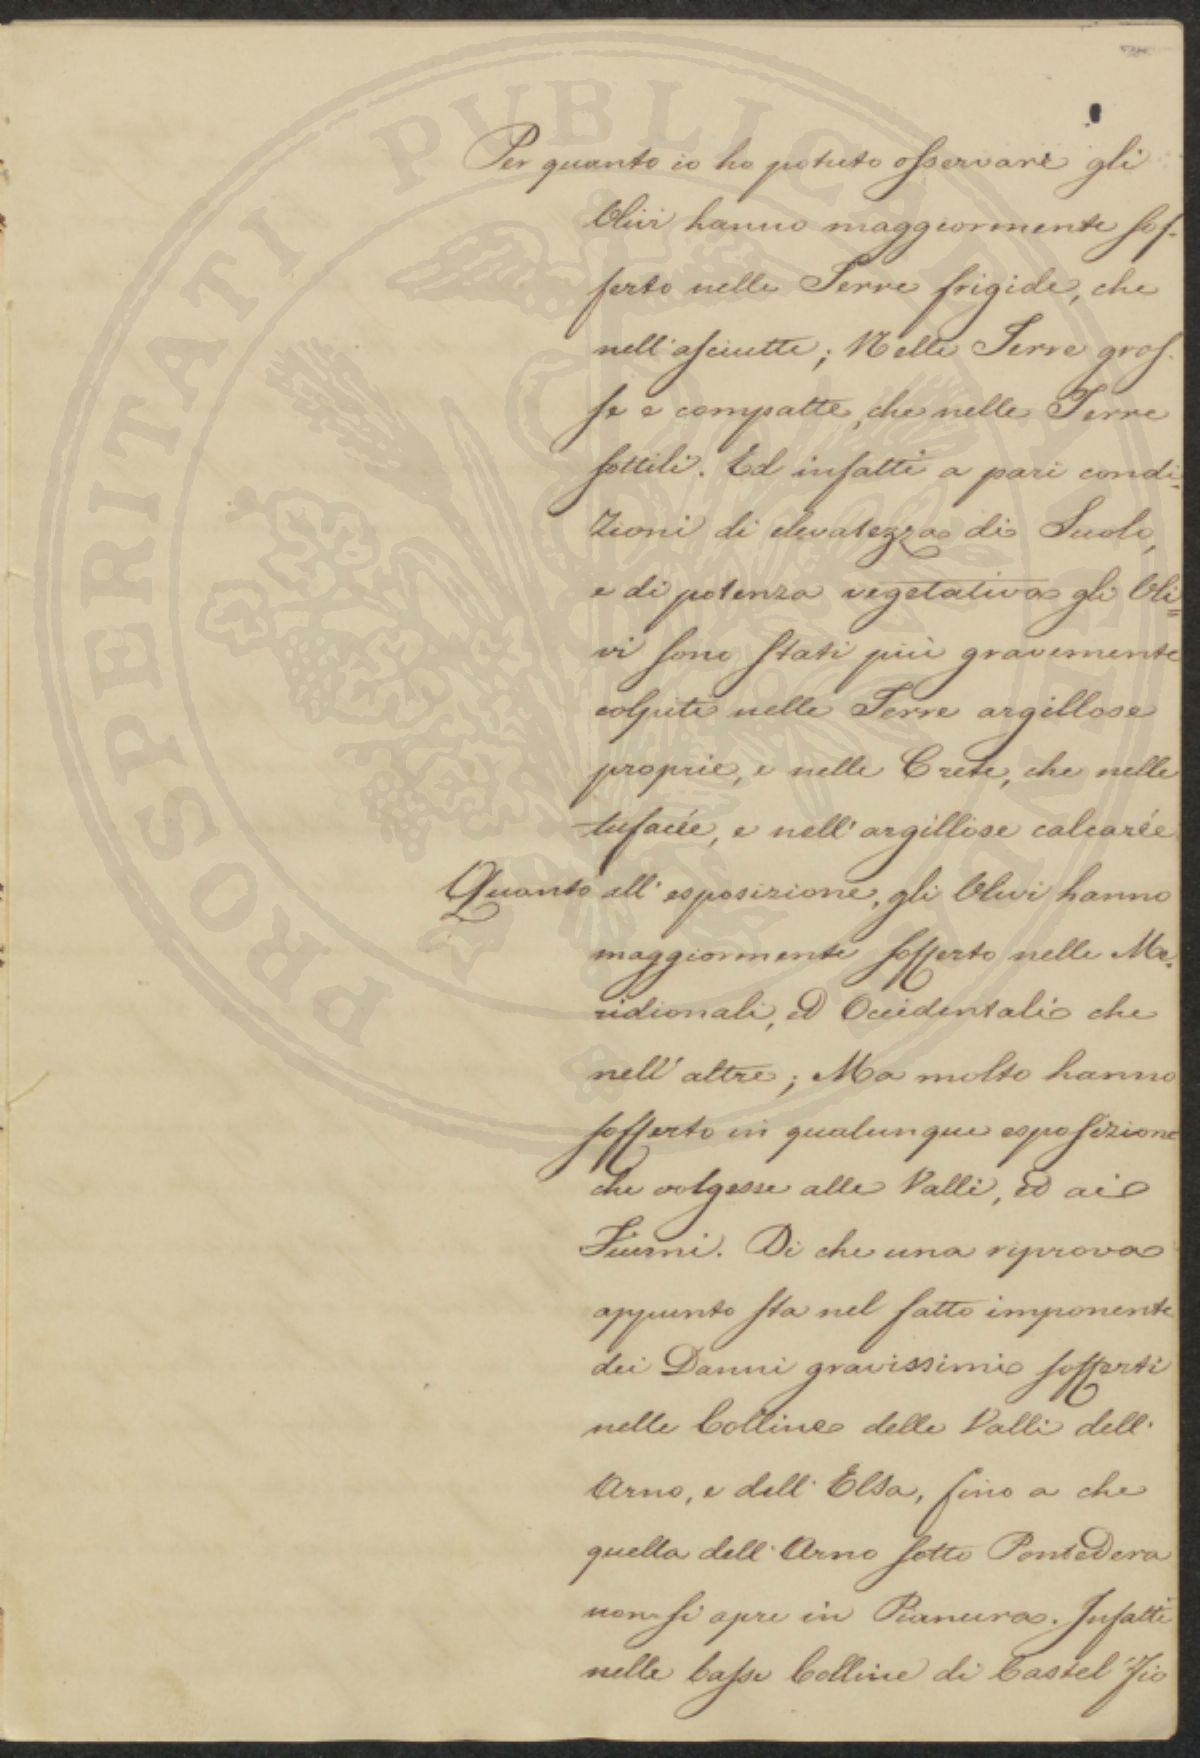 Per quanto io ho potuto osservare gli
Olivi hanno maggiormente sof-
ferto nelle Terre frigide, che
nell'asciutte; Nelle Terre gros-
se e compatte, che nelle Terre
sottili. Ed infatti a pari condi-
zioni di elevatezza di Suolo,
e di potenza vegetativa gli Oli=
vi sono stati più gravemente
colpiti nelle Terre argillose
proprie, e nelle Crete, che nelle
tufacée, e nell'argillose calcarée
Quanto all'esposizione, gli Olivi hanno
maggiormente sofferto nelle Me-
ridionali, ed Occidentali che
nell'altre; Ma molto hanno
sofferto in qualunque esposizione
che volgesse alle Valli, ed ai
Fiumi. Di che una riprova
appunto sta nel fatto imponente
dei Danni gravissimi sofferti
nelle Colline delle Valli dell'
Arno, e dell'Elsa, fino a che
quella dell'Arno sotto Pontedera
non si apre in Pianura. Infatti
nelle basse Colline di Castel Fio
PROSPERITATI PUBLICAE